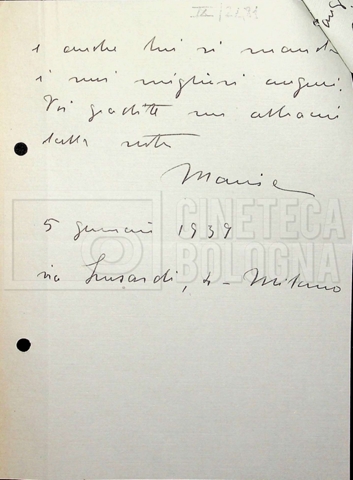 e anche lui vi manda
i suoi migliori auguri.
Voi gradite un abbraccio
dalla vostra
5 gennaio 1939
via 4 - Milano
CINETECA
BOLOGNA